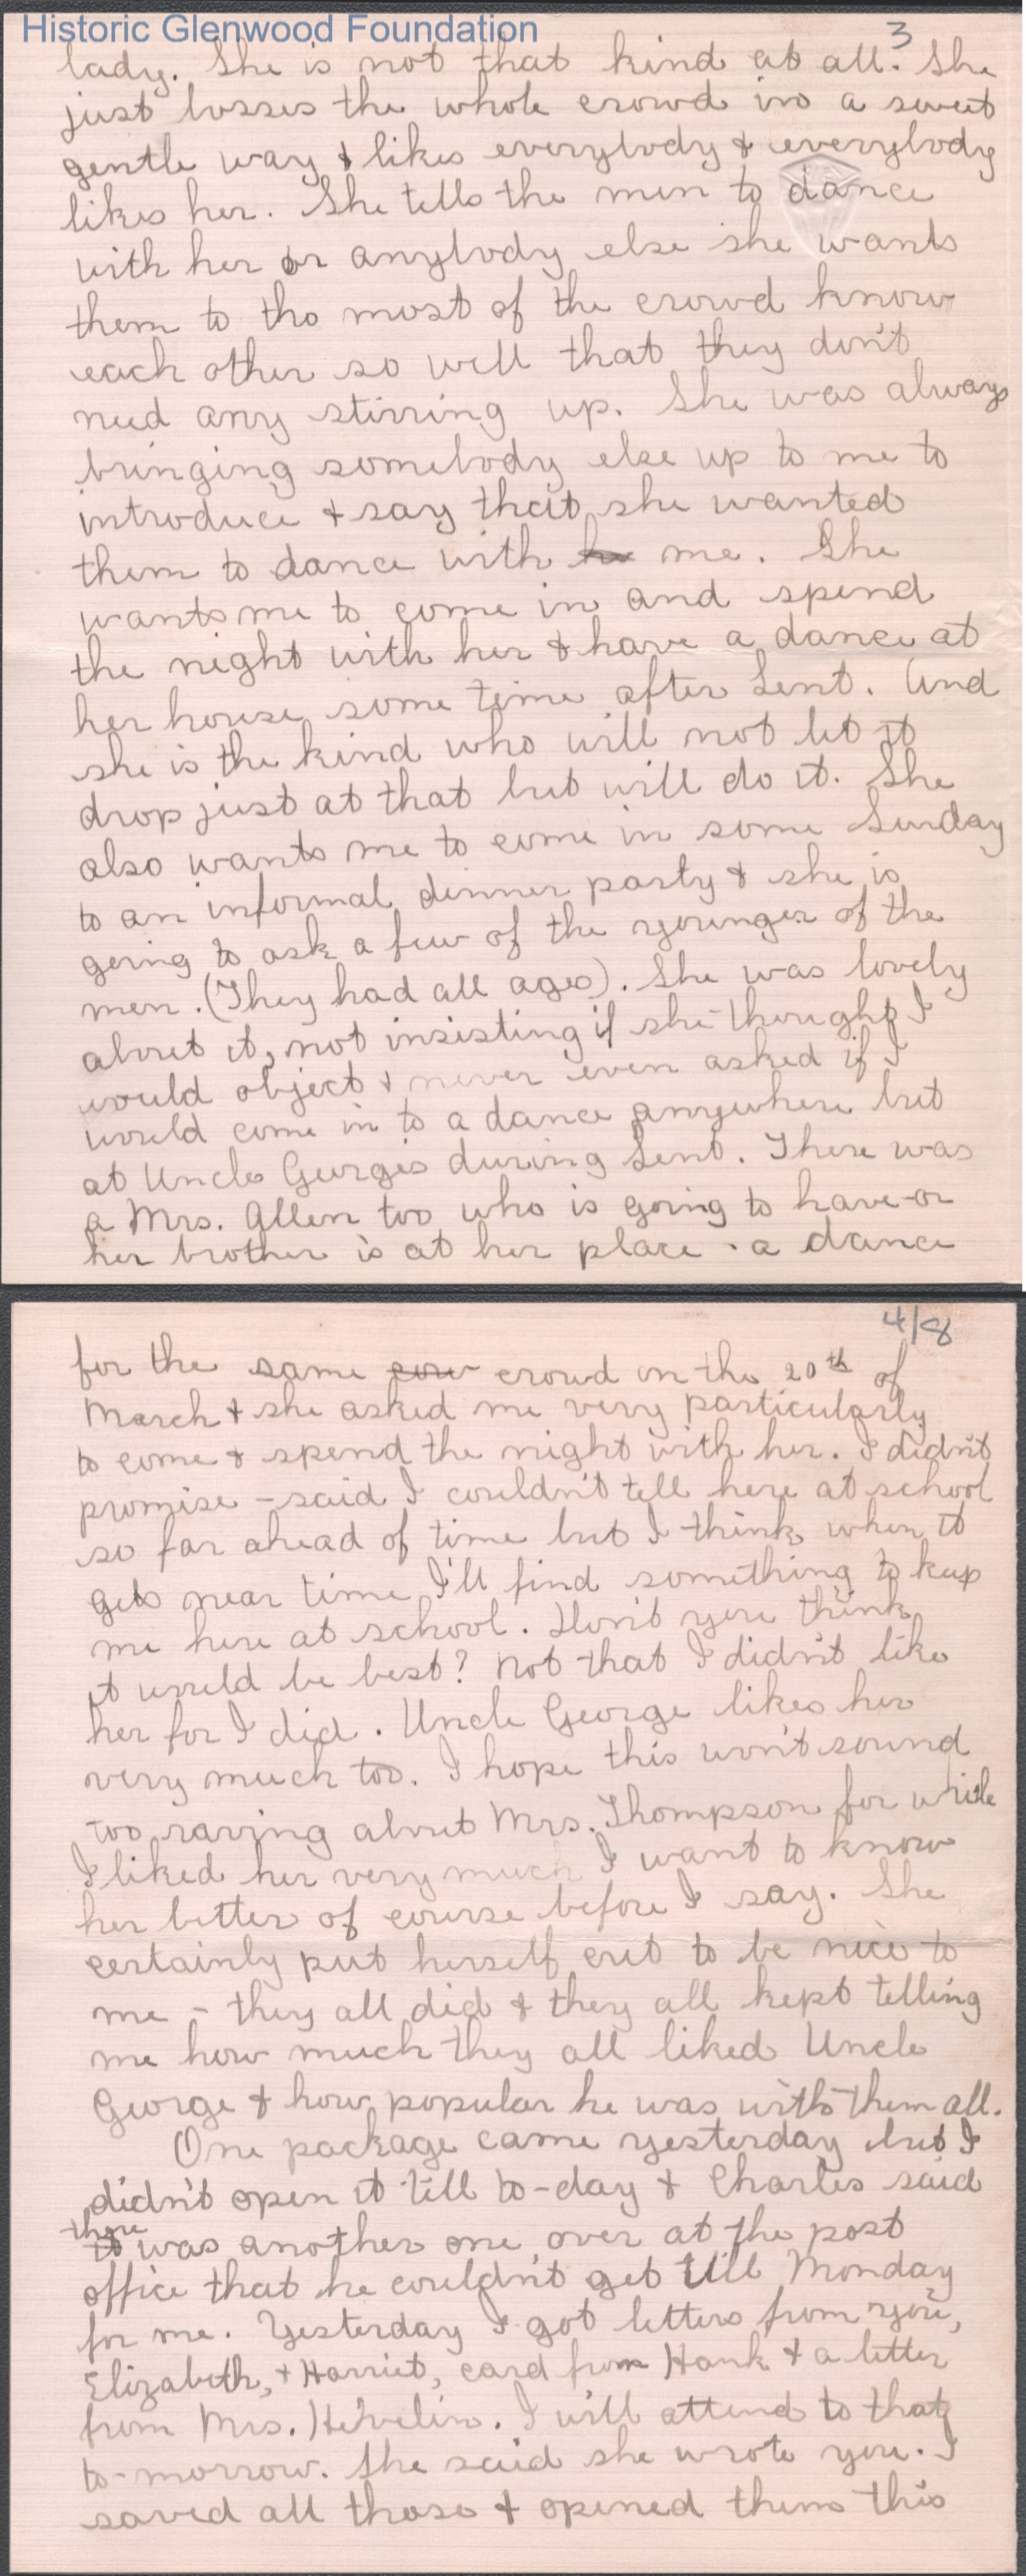 Historic Glenwood Foundation
3
lady. She is not that kind at all. She
just bosses the whole crowd in a sweet
gentle way & likes everybody & everybody
likes her. She tells the men to dance
with her or anybody else she wants
them to tho most of the crowd know
each other so well that they don't
need any stirring up. She was always
bringing somebody else up to me to
introduce & say that she wanted
them to dance with he me. She
wants me to come in and spend
the night with her & have a dance at
her house some time after Lent. And
she is the kind who will not let it
drop just at that but will do it. She
also wants me to come in some Sunday
to an informal dinner party & she is
going to ask a few of the younger of the
men. (They had all ages). She was lovely
about it, not insisting if she thought I
would object & never even asked if I
would come in to a dance anywhere but
at Uncle George's during Lent. There was
a Mrs. Allen too who is going to have - or
her brother is at her place - a dance
4/8
for the same crow crowd on the 20th of
March & she asked me very particularly
to come & spend the night with her. I didn't
promise - said I couldn't tell here at school
so far ahead of time but I think when it
gets near time I'll find something to keep
me here at school. Don't you think
it would be best? Not that I didn't like
her for I did. Uncle George likes her
very much too. I hope this won't sound
too raving about Mrs. Thompson for while
I liked her very much I want to know
her better of course before I say. She
certainly put herself out to be nice to
me - they all did & they all kept telling
me how much they all liked Uncle
George & how popular he was with them all.
One package came yesterday but I
didn't open it till to-day & Charles said
there
it was another one over at the post
office that he couldn't get till Monday
for me. Yesterday I got letters from you,
Elizabeth, & Harriet, card from Hank & a letter
from Mrs. I will attend to that
to-morrow. She said she wrote you. I
saved all those & opened them this